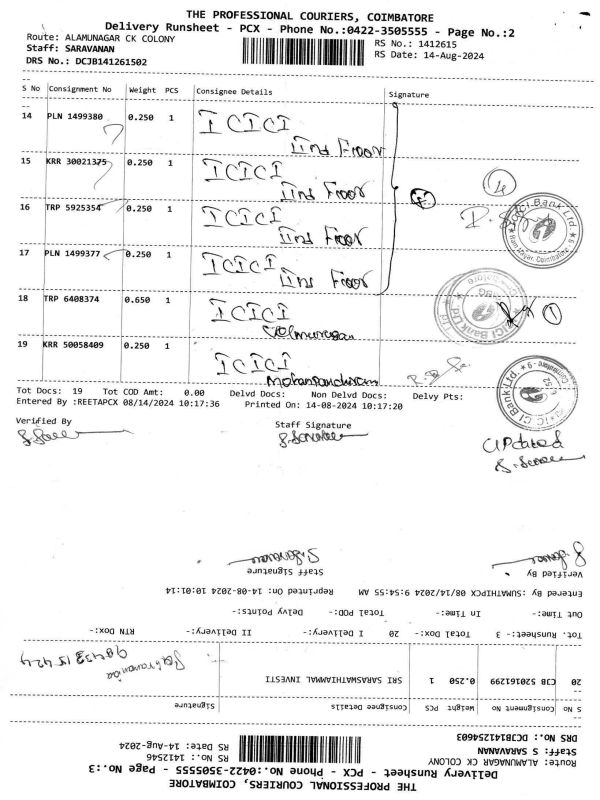 THE PROFESSIONAL COURIERS, COIMBATORE
Delivery Runsheet - PCX - Phone No.:0422-3505555 - Page No.:2
Route: ALAMUNAGAR CK COLONY
Staff: SARAVANAN
DRS No.: DCJB141261502
RS No.: 1412615
RS Date: 14-Aug-2024
S No Consignment No Weight PCS Consignee Details Signature
14 PLN 1499380 0.250 1 ICICI
IInd Floor
15 KRR 30021375 0.250 1 ICICI
IInd Floor
16 TRP 5925354 0.250 1 ICICI
IInd Floor
17 PLN 1499377 0.250 1 ICICI
IInd Floor
4
ICICI Bank Ltd.
18 TRP 6408374 0.650 1 ICICI
1
19 KRR 50058409 0.250 1 ICICI
Tot Docs: 19 Tot COD Amt: 0.00 Delvd Docs: Non Delvd Docs: Delvy Pts:
Entered By :REETAPCX 08/14/2024 10:17:36 Printed On: 14-08-2024 10:17:20
Verified By
Staff Signature
Updated
THE PROFESSIONAL COURIERS, COIMBATORE
Delivery Runsheet - PCX - Phone No.:0422-3505555 - Page No.:3
Route: ALAMUNAGAR CK COLONY
Staff: S SARAVANAN
DRS No.: DCJB141254603
RS No.: 1412546
RS Date: 14-Aug-2024
S No Consignment No Weight PCS Consignee Details Signature
20 CJB 520161299 0.250 1 SRI SARASWATHIAMMAL INVESTI
Tot. Runsheet:- 3 Total Dox:- 20 I Delivery:- II Delivery:- RTN Dox:-
Out Time:- In Time:- Total POD:- Delvy Points:-
Entered By :SUMATHIPCX 08/14/2024 9:54:55 AM Reprinted On: 14-08-2024 10:01:14
Verified By
Staff Signature